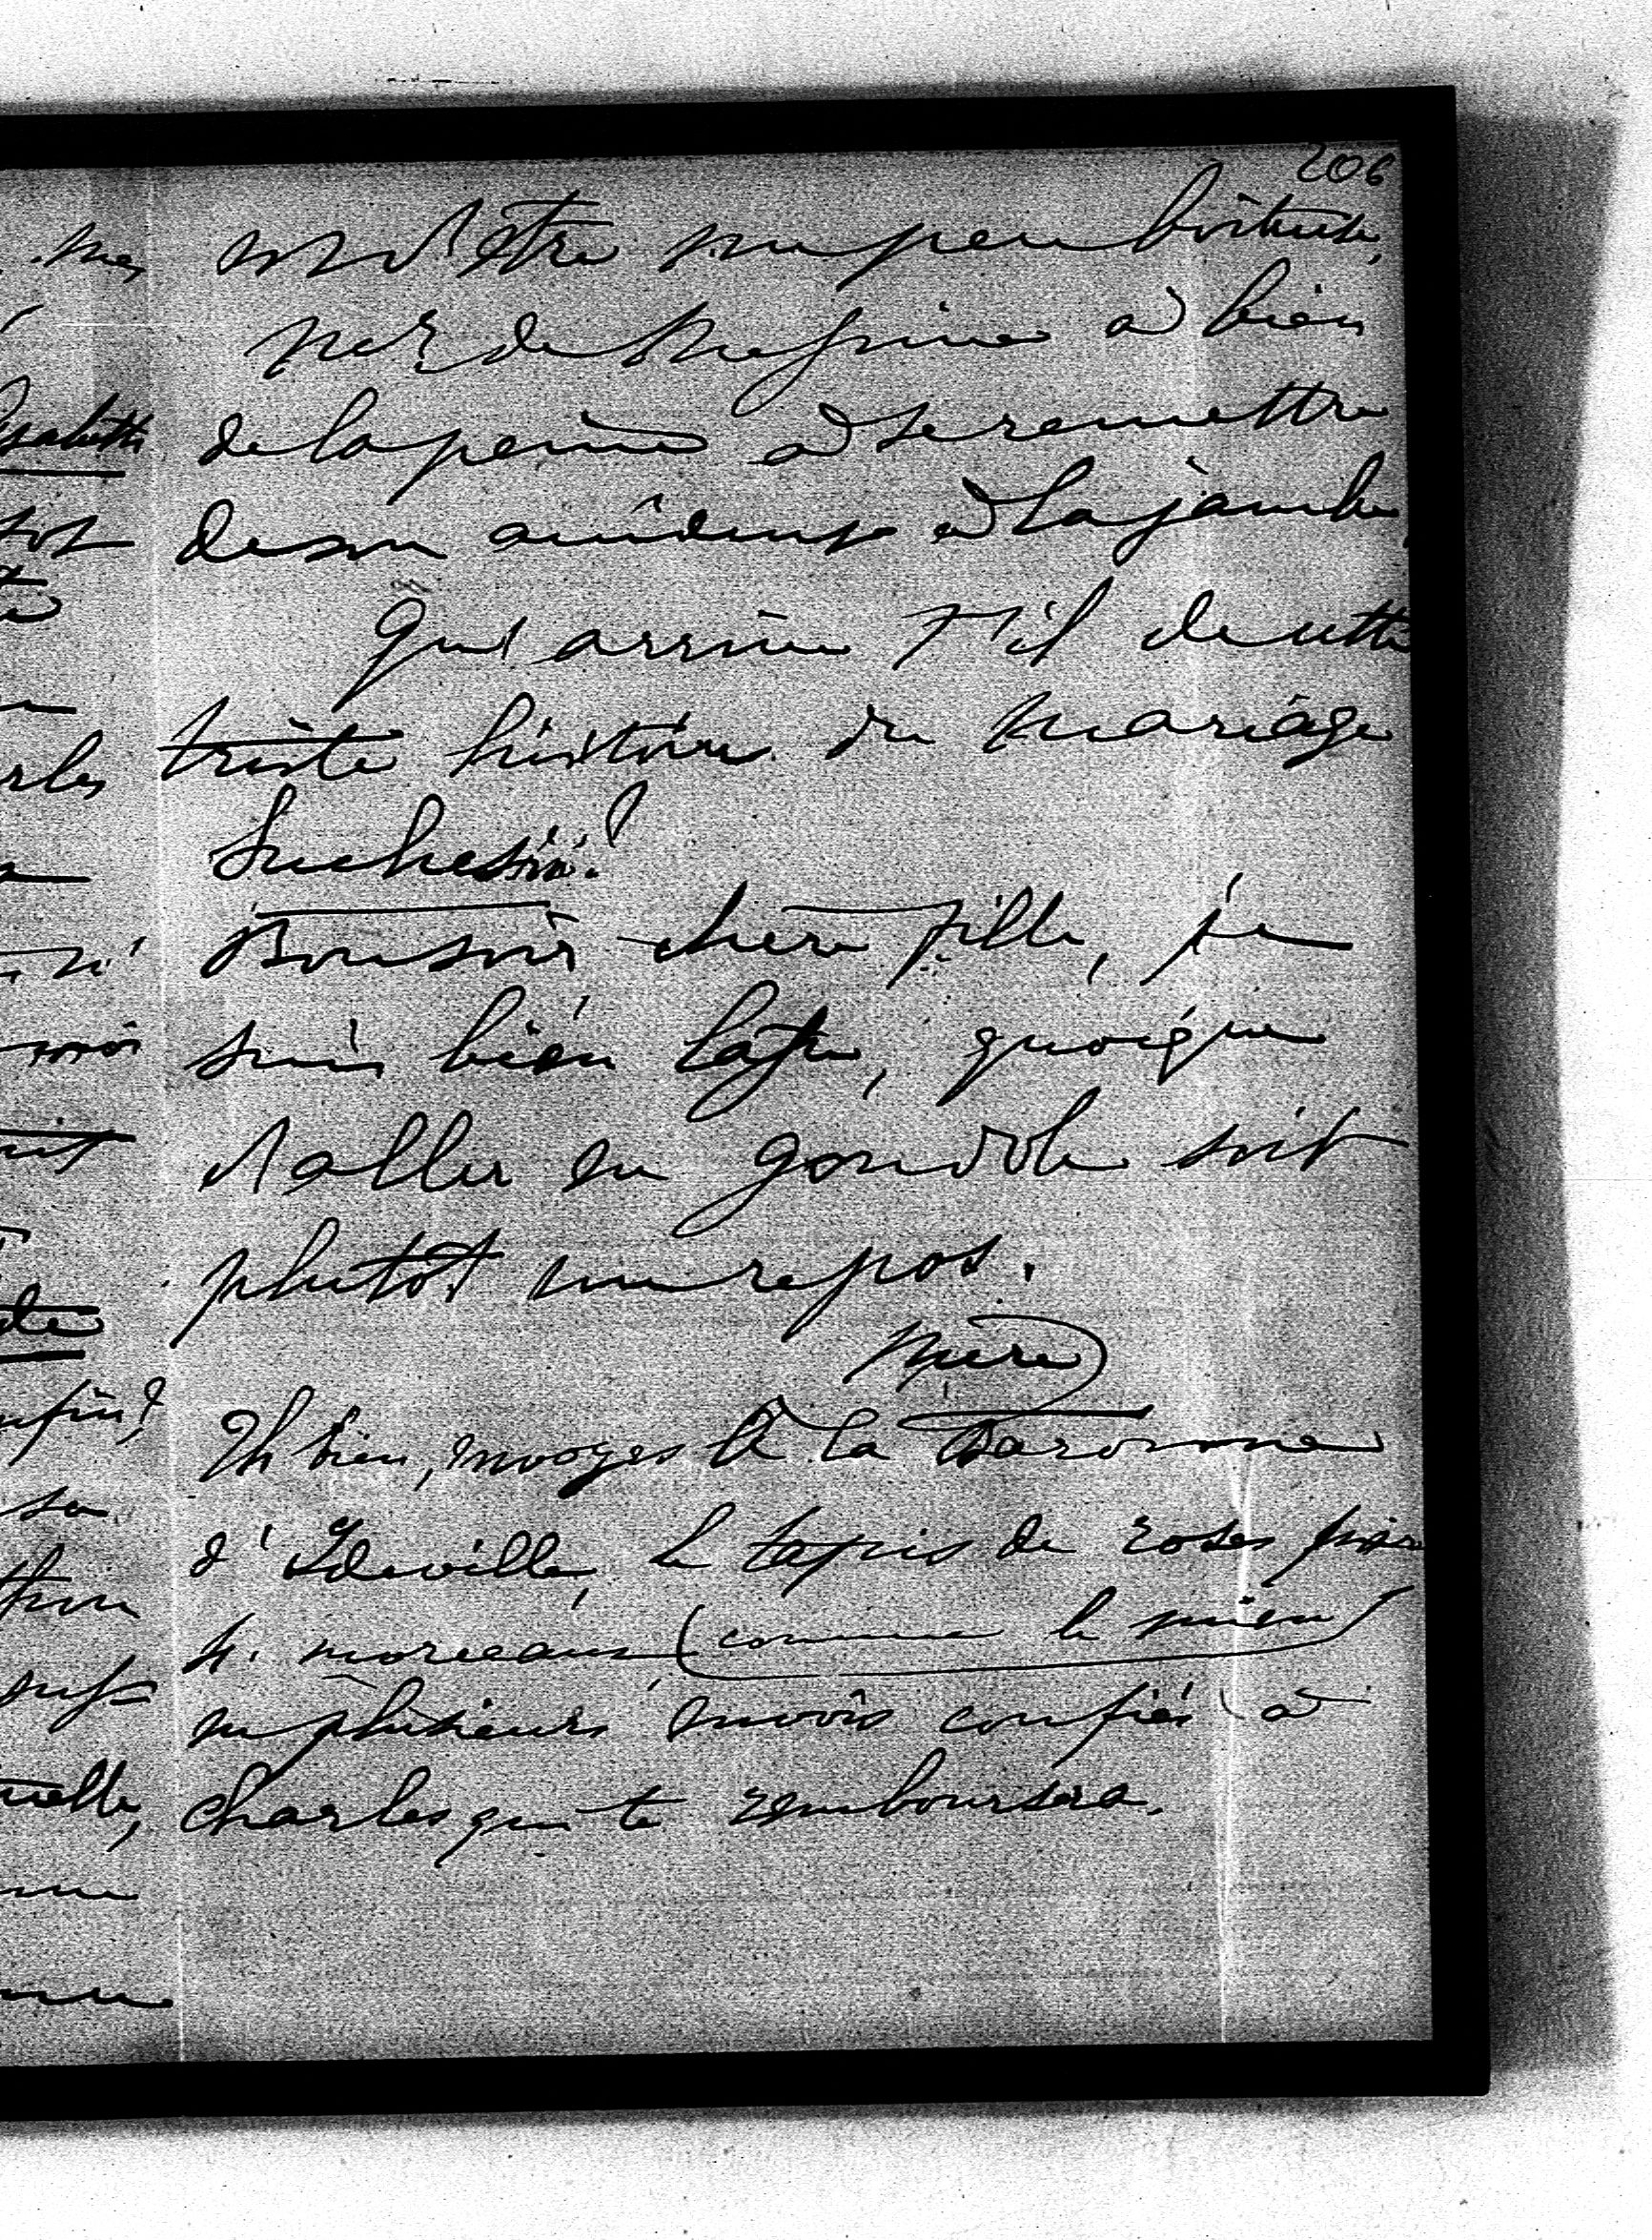 206
d'être un peu boiteuse,
de Messine a bien
de la peine à se remettre
de son accident à la jambe
Qu'arrive t'il de cette
triste histoire du mariage
Suchesin?
Bonsoir chère fille, je
suis bien lasse, quoique
d'aller en gondole soit
plutôt un repos.
Mère
Eh bien, envoyes à la Baronne
d'Ideville, le tapis de roses
4. morceaux (comme le mien)
en plusieurs envois confiés à
Charles qui te remboursera.